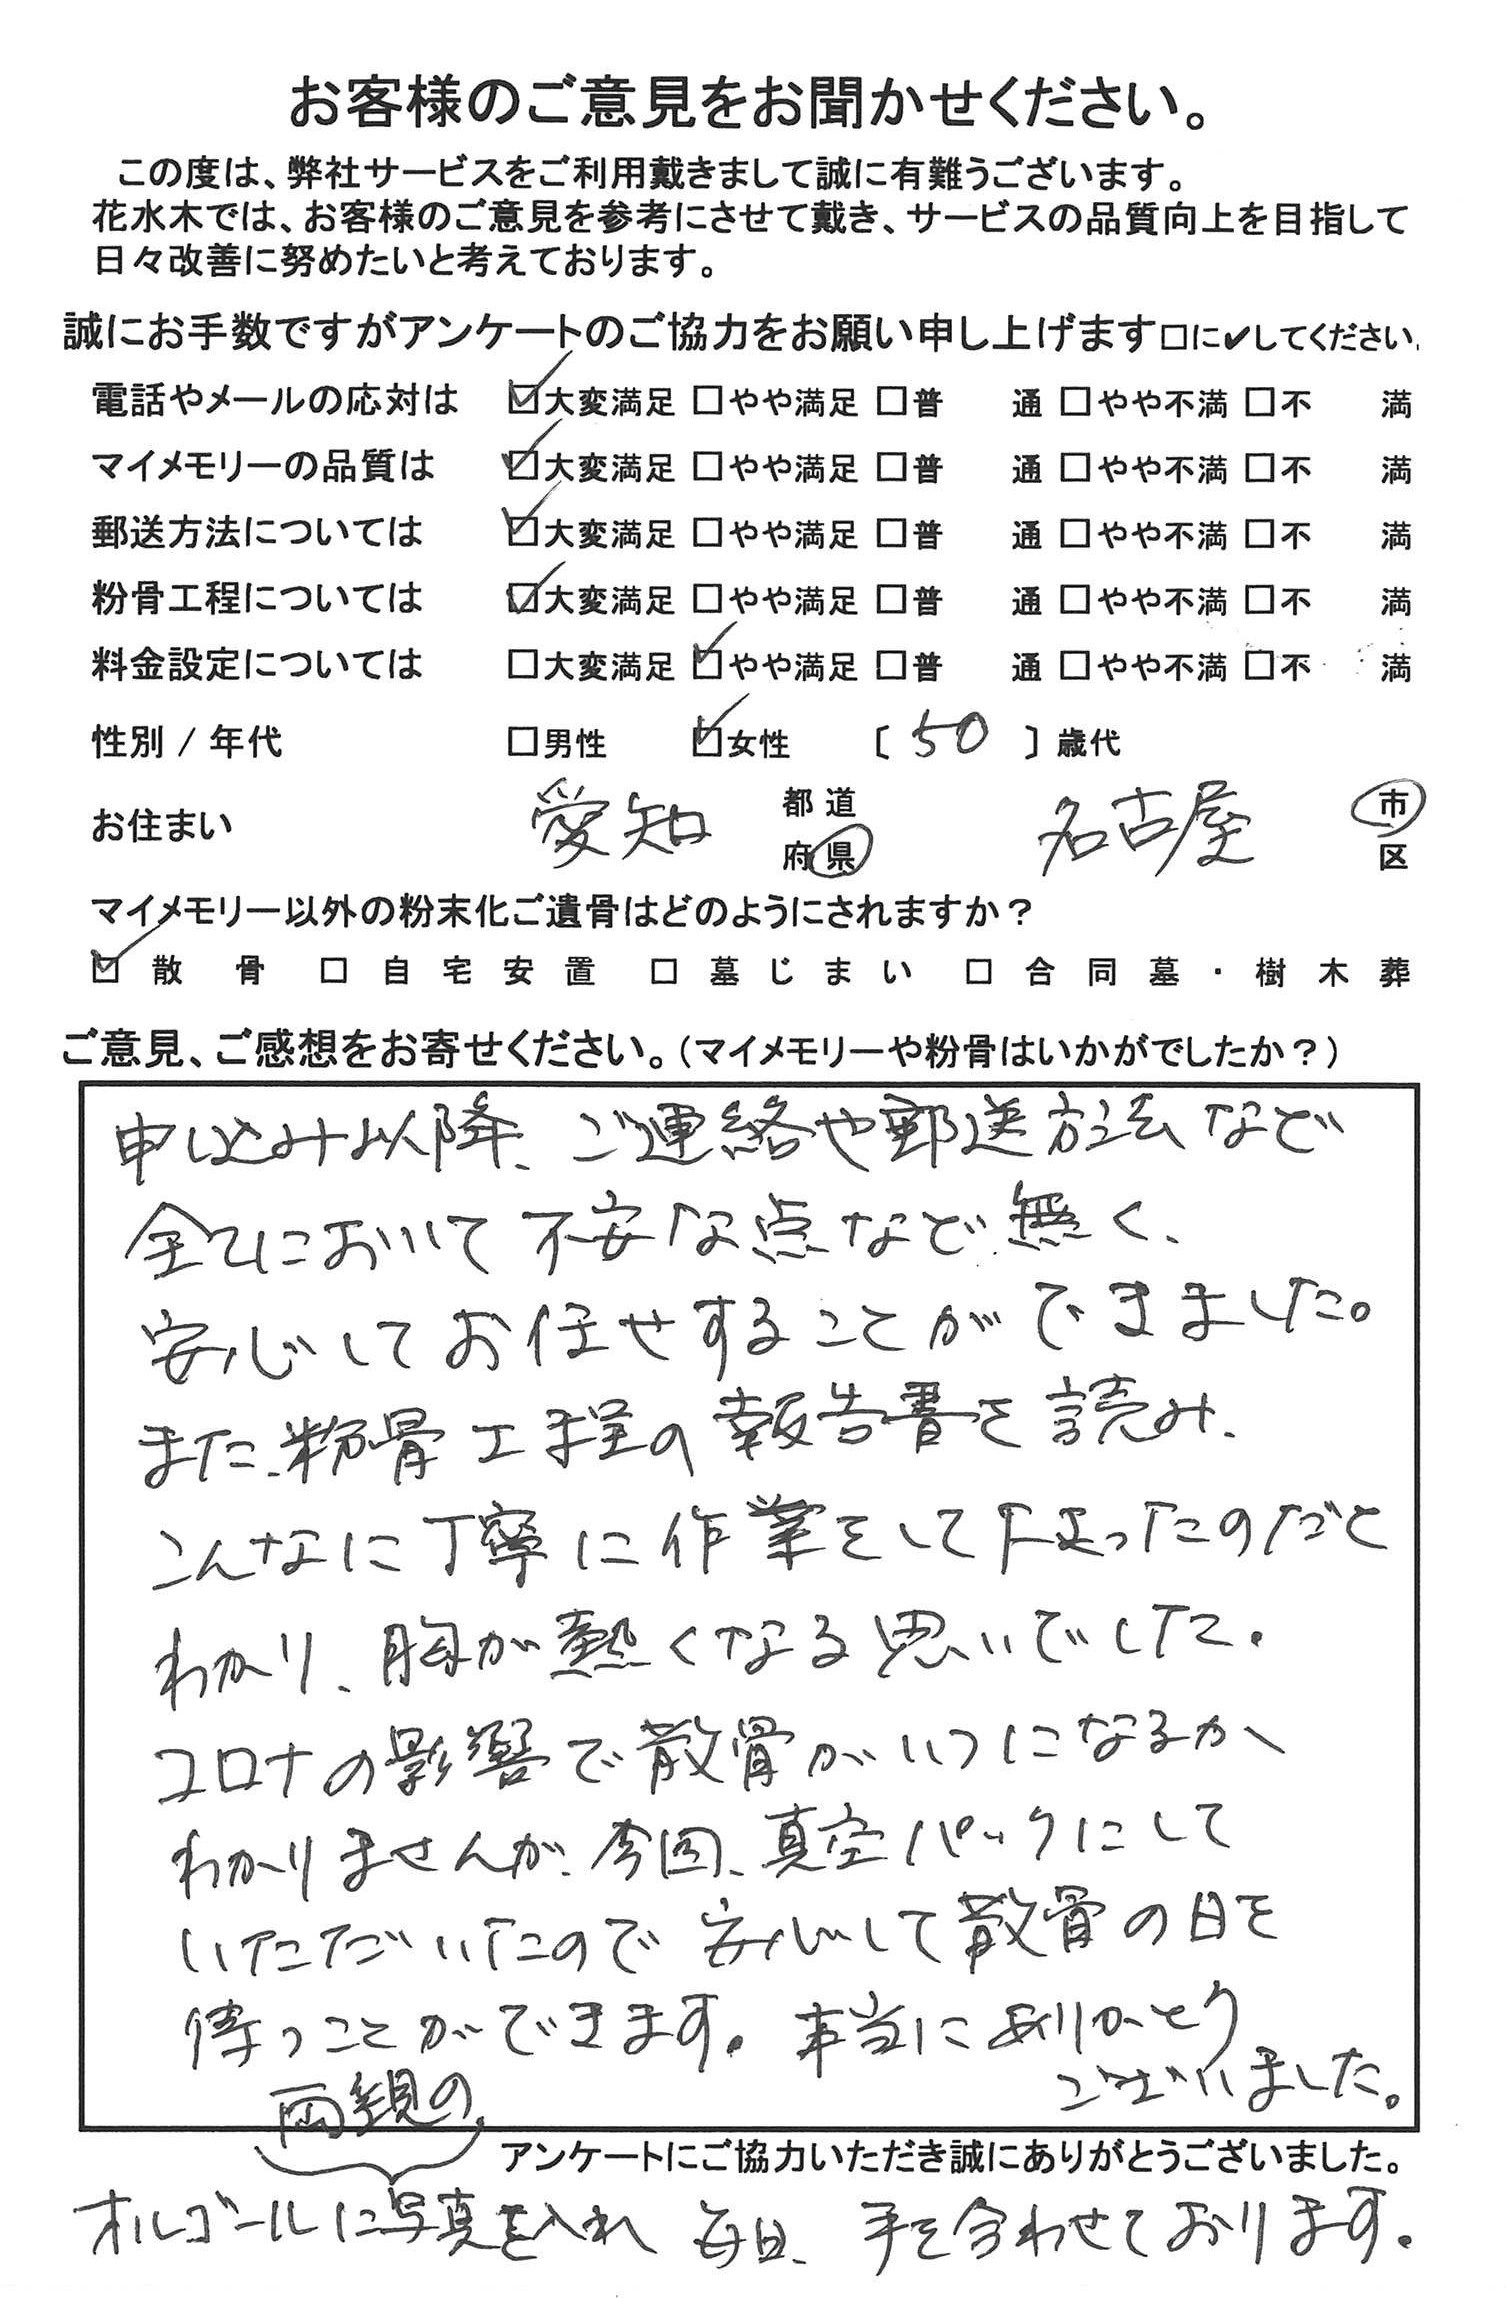 お客様のご意見をお聞かせください。
この度は、弊社サービスをご利用戴きまして誠に有難うございます。
花水木では、お客様のご意見を参考にさせて戴き、サービスの品質向上を目指して
日々改善に努めたいと考えております。
誠にお手数ですがアンケートのご協力をお願い申し上げます□に✔してください。
電話やメールの応対は ☑大変満足 □やや満足 □普 通 □やや不満 □不 満
マイメモリーの品質は ☑大変満足 □やや満足 □普 通 □やや不満 □不 満
郵送方法については ☑大変満足 □やや満足 □普 通 □やや不満 □不 満
粉骨工程については ☑大変満足 □やや満足 □普 通 □やや不満 □不 満
料金設定については □大変満足 ☑やや満足 □普 通 □やや不満 □不 満
性別 / 年代 □男性 ☑女性 〔 50 〕歳代
お住まい 愛知 都道府県 名古屋 市区
マイメモリー以外の粉末化ご遺骨はどのようにされますか？
☑ 散骨 □ 自宅安置 □ 墓じまい □ 合同墓・樹木葬
ご意見、ご感想をお寄せください。（マイメモリーや粉骨はいかがでしたか？）
申し込み以降、ご連絡や郵送方法など
全てにおいて不安な点など無く、
安心してお任せすることができました。
また、粉骨工程の報告書を読み、
こんなに丁寧に作業をして下さったのだと
わかり、胸が熱くなる思いでした。
コロナの影響で散骨がいつになるか
わかりませんが、今回、真空パックにして
いただいたので安心して散骨の日を
待つことができます。本当にありがとう
ございました。
両親の
アンケートにご協力いただき誠にありがとうございました。
オルゴールに写真を入れ 毎日、手を合わせております。